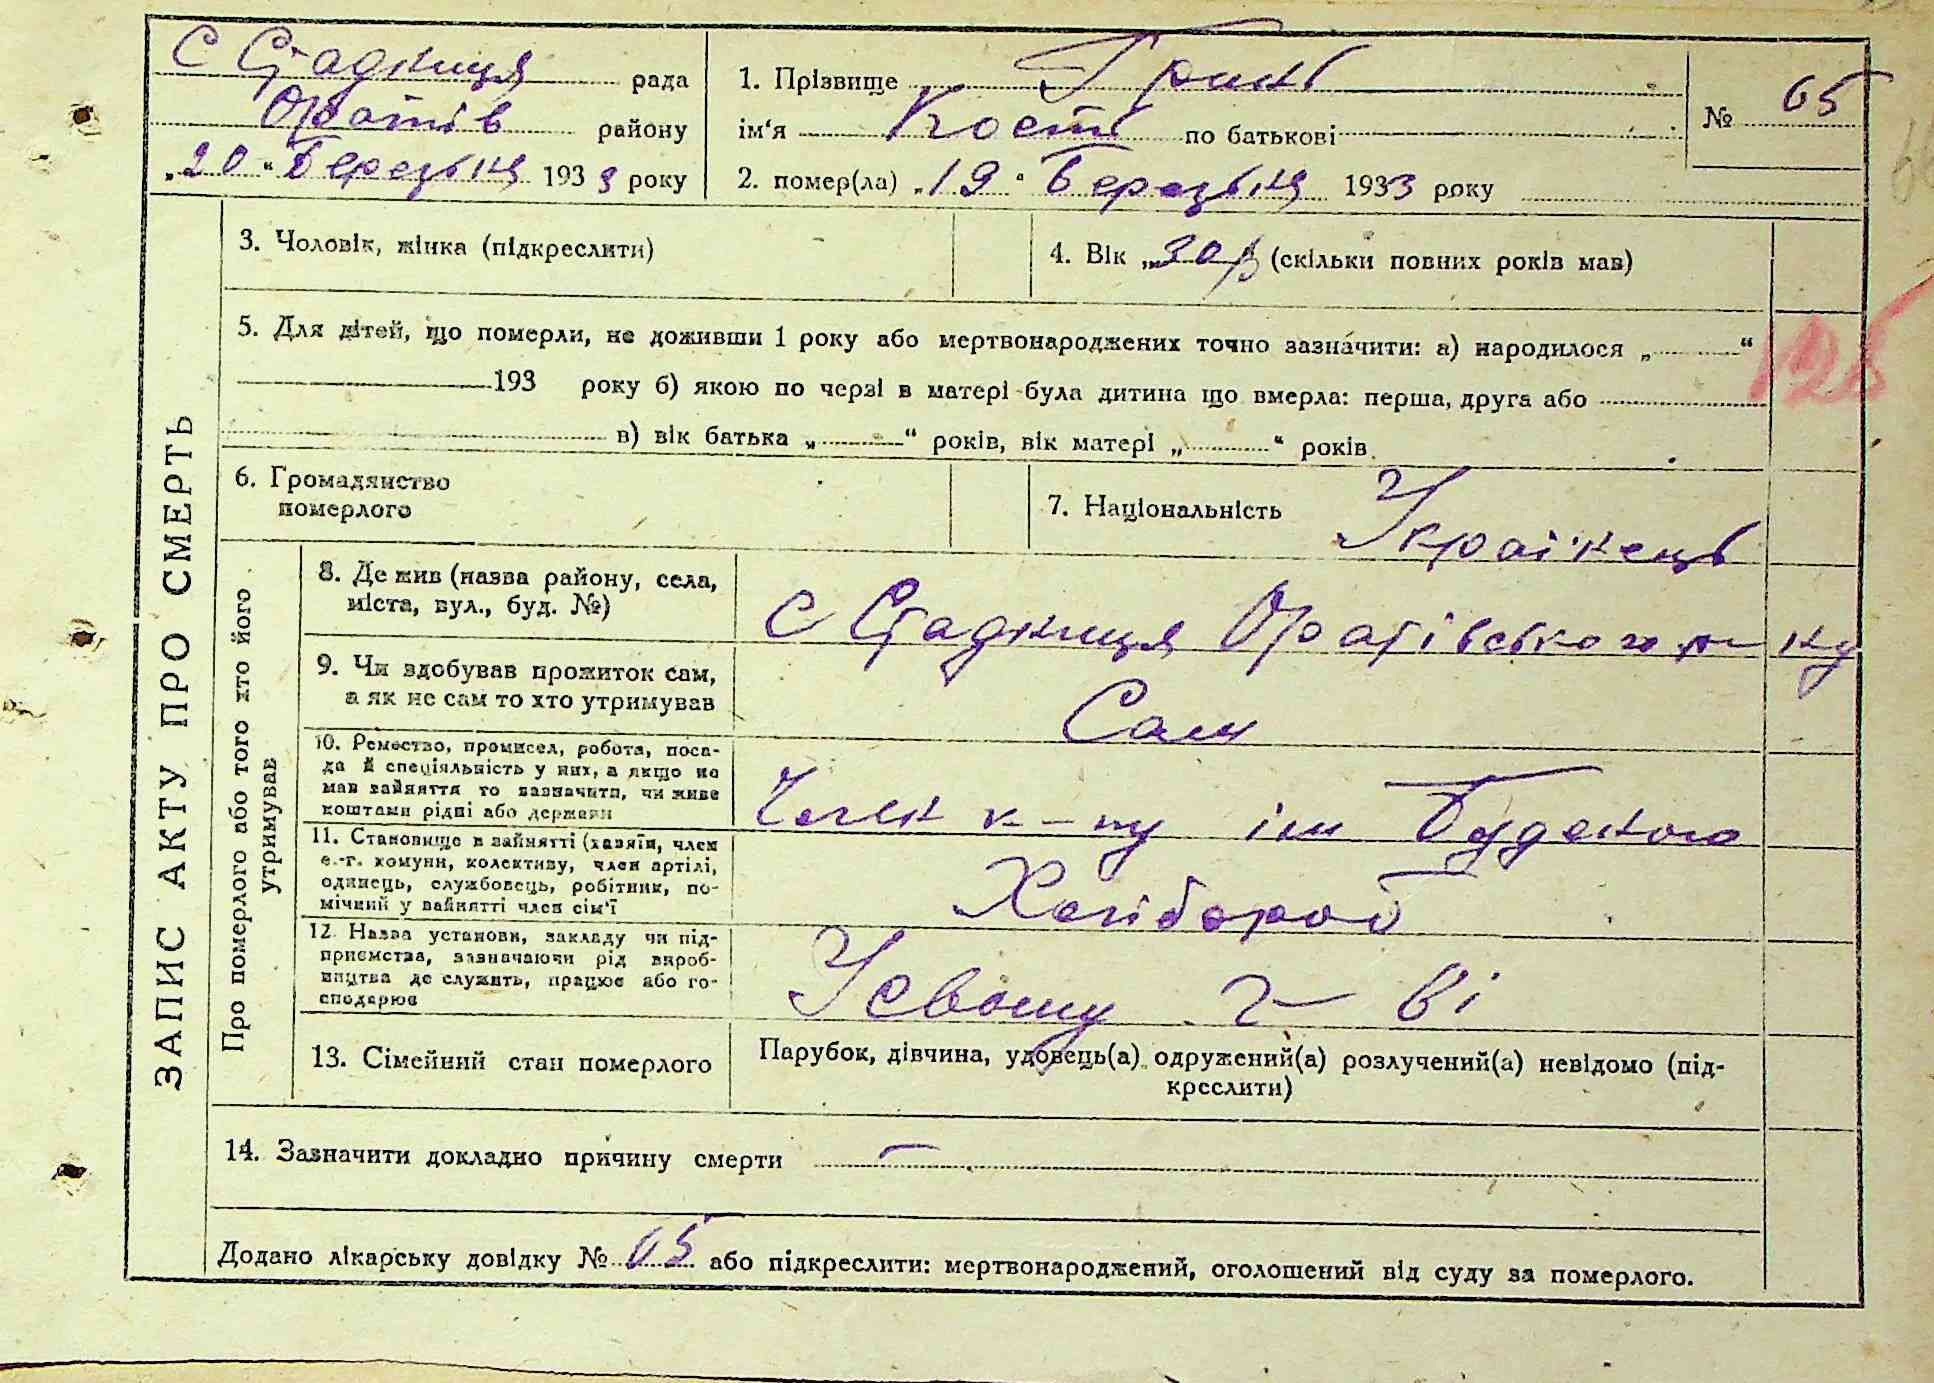 С Стадниця рада
Оратів району
„20“ Березня 1933 року
1. Прізвище Гринь
ім'я Кость по батькові
2. помер(ла) „19“ Березня 1933 року
№ 65
ЗАПИС АКТУ ПРО СМЕРТЬ
3. Чоловік, жінка (підкреслити)
4. Вік „30р (скільки повних років мав)
5. Для дітей, що померли, не доживши 1 року або мертвонароджених точно зазначити: а) народилося „ “
193 року б) якою по черзі в матері була дитина що вмерла: перша, друга або
в) вік батька „ “ років, вік матері „ “ років
126
6. Громадянство
померлого
7. Національність Українець
Про померлого або того хто його
утримував
8. Де жив (назва району, села,
міста, вул., буд. №)
С Стадниця Оратівського р-ну
9. Чи здобував прожиток сам,
а як не сам то хто утримував
Сам
10. Ремество, промисел, робота, поса-
да й спеціяльність у них, а якщо не
мав зайняття то зазначити, чи живе
коштами рідні або держави
Член к-пу ім
11. Становище в зайнятті (хазяїн, член
с.-г. комуни, колективу, член артілі,
одинець, службовець, робітник, по-
мічний у зайнятті член сім'ї
Хлібороб
12. Назва установи, закладу чи під-
приємства, зазначаючи рід вироб-
ництва де служить, працює або го-
сподарює
У свому г-ві
13. Сімейний стан померлого
Парубок, дівчина, удовець(а) одружений(а) розлучений(а) невідомо (під-
креслити)
14. Зазначити докладно причину смерти —
Додано лікарську довідку № 65 або підкреслити: мертвонароджений, оголошений від суду за померлого.